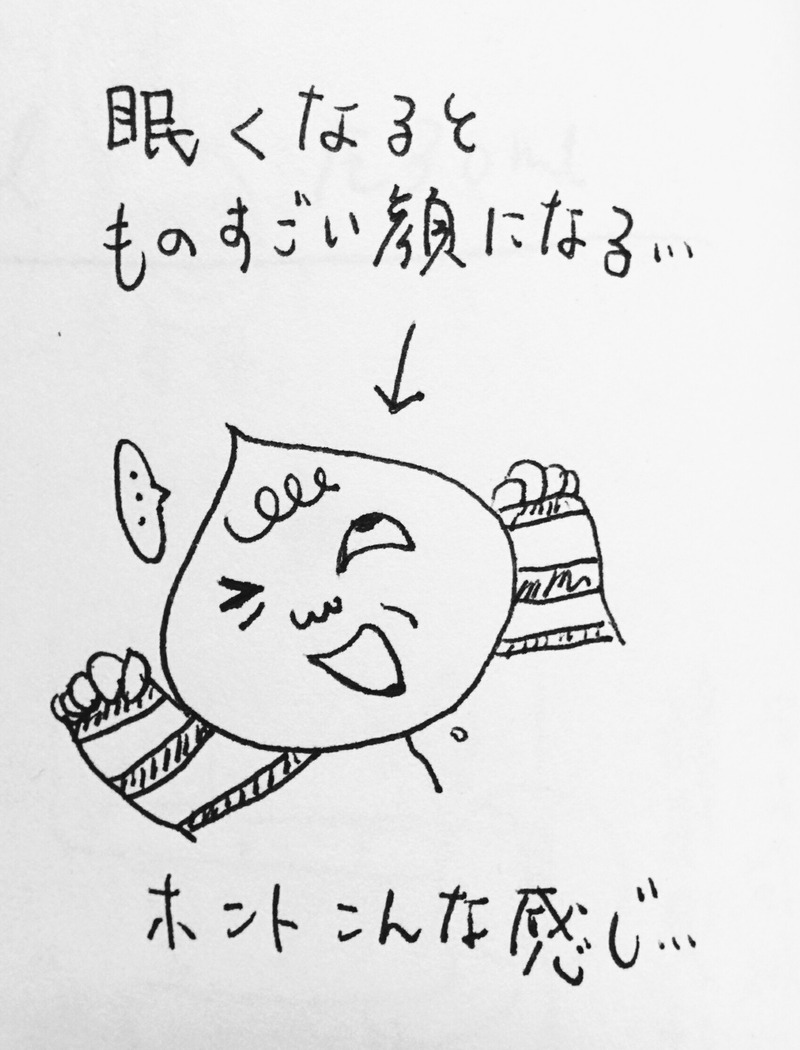 眠くなると
ものすごい顔になる…
ホントこんな感じ…